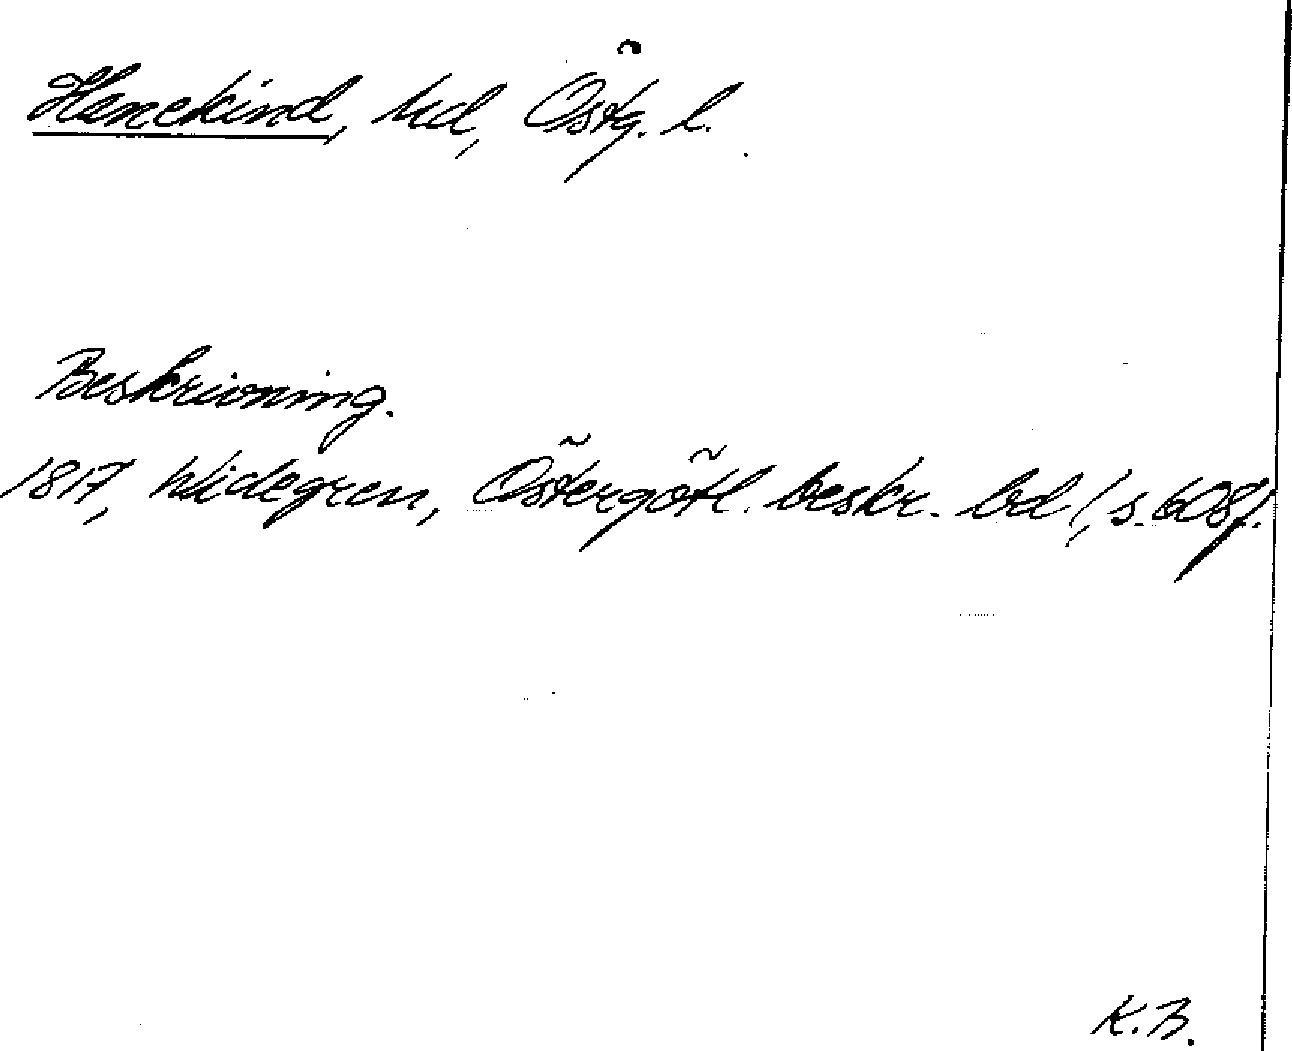 Hanekind, hd, Östg. l.
Beskrivning.
1817, Widegren, Östergötl. beskr. bd 1, s. 608f.
K.B.